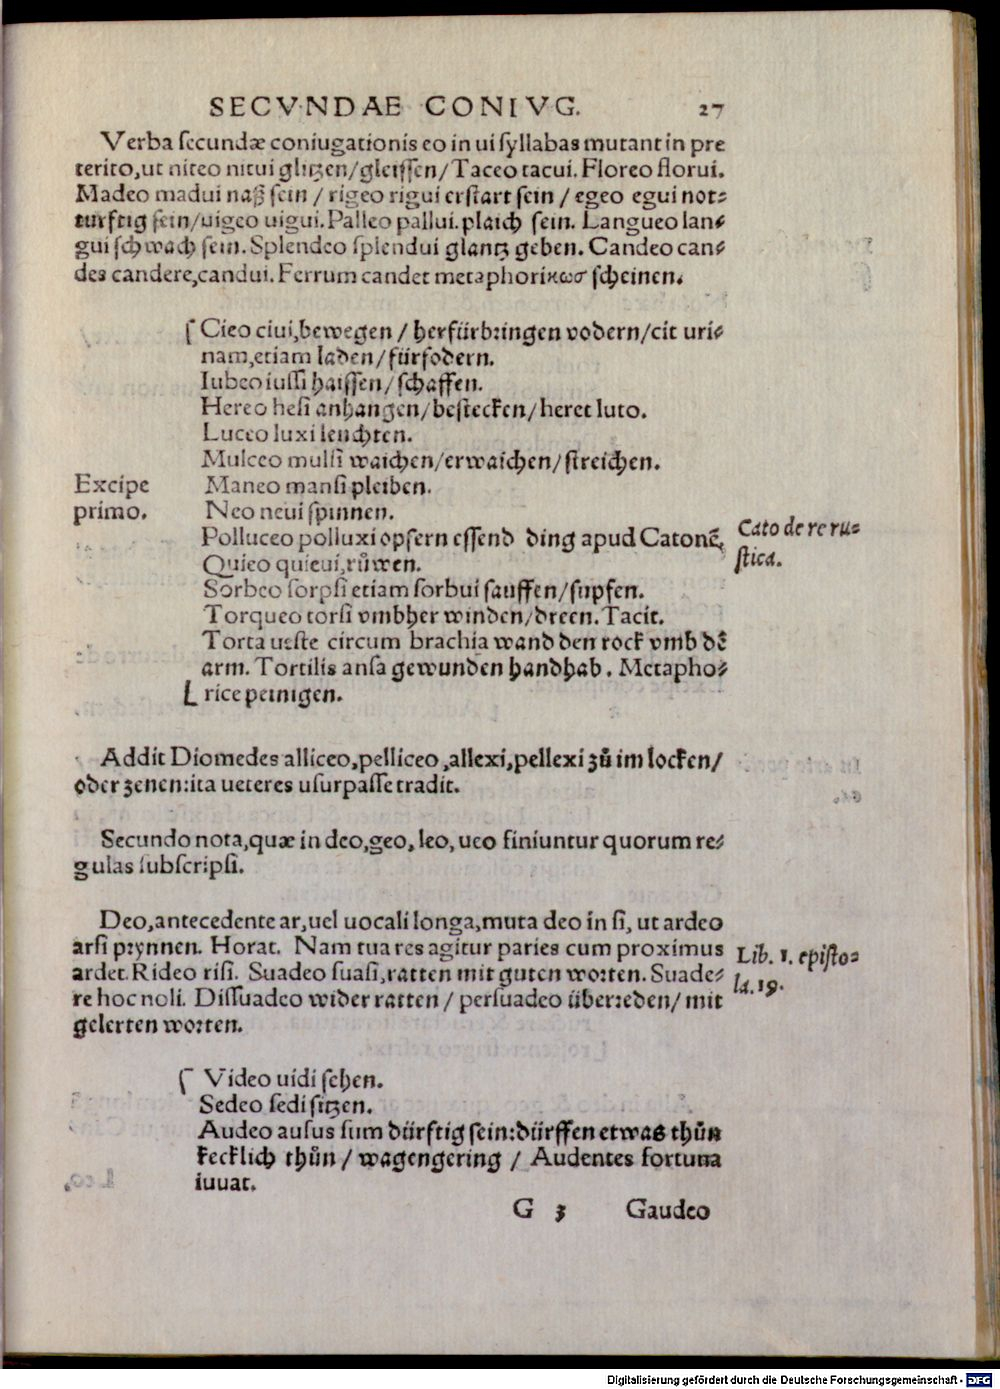 SECVNDAE CONIVG. 27
Verba ſecundæ coniugationis eo in ui ſyllabas mutant in pre
terito, ut niteo nitui glitzen/gleiſſen/Taceo tacui. Floreo florui.
Madeo madui naß ſein / rigeo rigui erſtart ſein / egeo egui not⸗
turftig ſein/uigeo uigui. Palleo pallui. plaich ſein. Langueo lan⸗
gui ſchwach ſein. Splendeo ſplendui glantz geben. Candeo can⸗
des candere, candui. Ferrum candet metaphoriκωσ ſcheinen.
Cieo ciui, bewegen / herfürbringen vodern/cit uri⸗
nam, etiam laden/fürfodern.
Iubeo iuſſi haiſſen/ſchaffen.
Hereo heſi anhangen/beſtecken/heret luto.
Luceo luxi leuchten.
Mulceo mulſi waichen/erwaichen/ſtreichen.
Excipe primo.
Maneo manſi pleiben.
Neo neui ſpinnen.
Polluceo polluxi opfern eſſend ding apud Catonē,
Cato de re ru⸗
ſtica.
Quieo quieui, růwen.
Sorbeo ſorpſi etiam ſorbui ſauffen/ſupfen.
Torqueo torſi vmbher winden/dreen. Tacit.
Torta ueſte circum brachia wand den rock vmb dē
arm. Tortilis anſa gewunden handhab. Metapho⸗
rice peinigen.
Addit Diomedes alliceo, pelliceo, allexi, pellexi zů im locken/
oder zenen: ita ueteres uſurpaſſe tradit.
Secundo nota, quæ in deo, geo, leo, ueo finiuntur quorum re⸗
gulas ſubſcripſi.
Deo, antecedente ar, uel uocali longa, muta deo in ſi, ut ardeo
arſi prynnen. Horat. Nam tua res agitur paries cum proximus
Lib. 1. epiſto⸗
la. 19.
ardet. Rideo riſi. Suadeo ſuaſi, ratten mit guten worten. Suade⸗
re hoc noli. Diſſuadeo wider ratten / perſuadeo überreden/ mit
gelerten worten.
Video uidi ſehen.
Sedeo ſedi ſitzen.
Audeo auſus ſum dürftig ſein: dürffen etwas thůn
kecklich thůn / wagengering / Audentes fortuna
iuuat.
G 3 Gaudeo
Digitalisierung gefördert durch die Deutsche Forschungsgemeinschaft - DFG